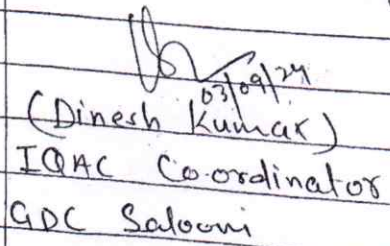 03/09/24
(Dinesh Kumar)
IQAC Co-ordinator
GDC Salooni